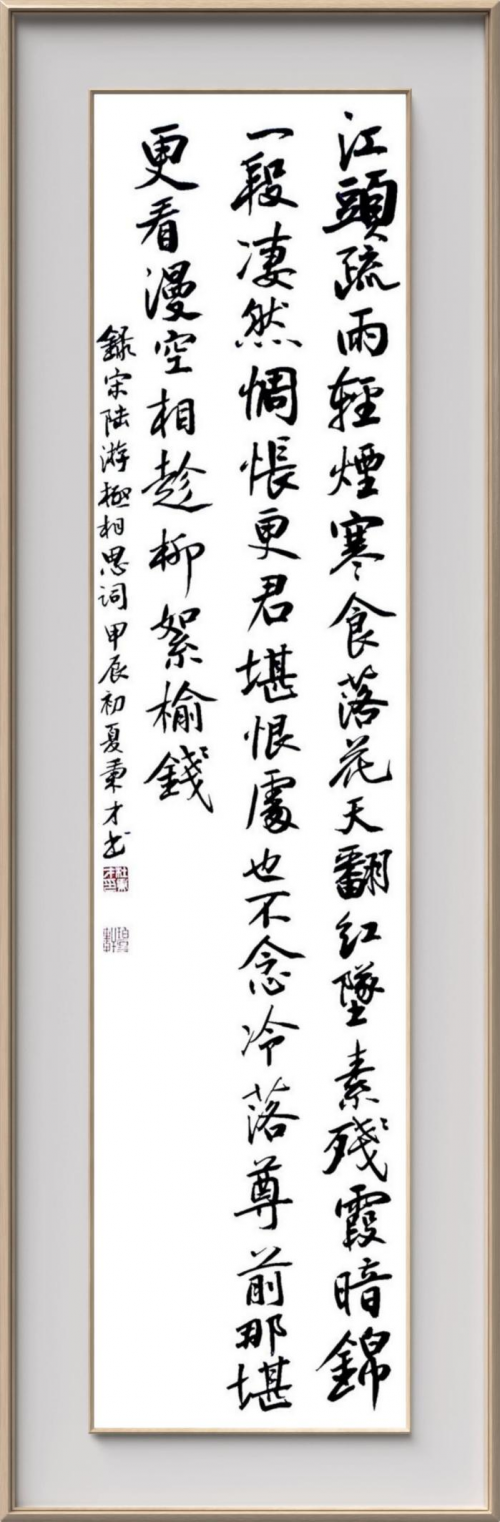 江頭疏雨輕煙寒食落花天翻紅墜素殘霞暗錦
一段凄然惆悵更君堪恨處也不念冷落尊前那堪
更看漫空相趁柳絮榆錢
錄宋陆游極相思词甲辰初夏秉才书